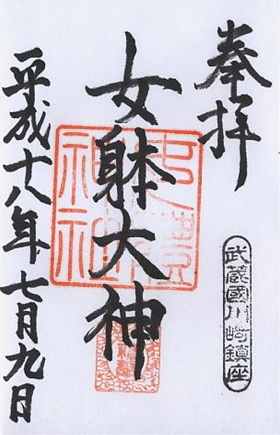 奉拝
武蔵國川崎鎮座
女躰大神
平成十八年七月九日